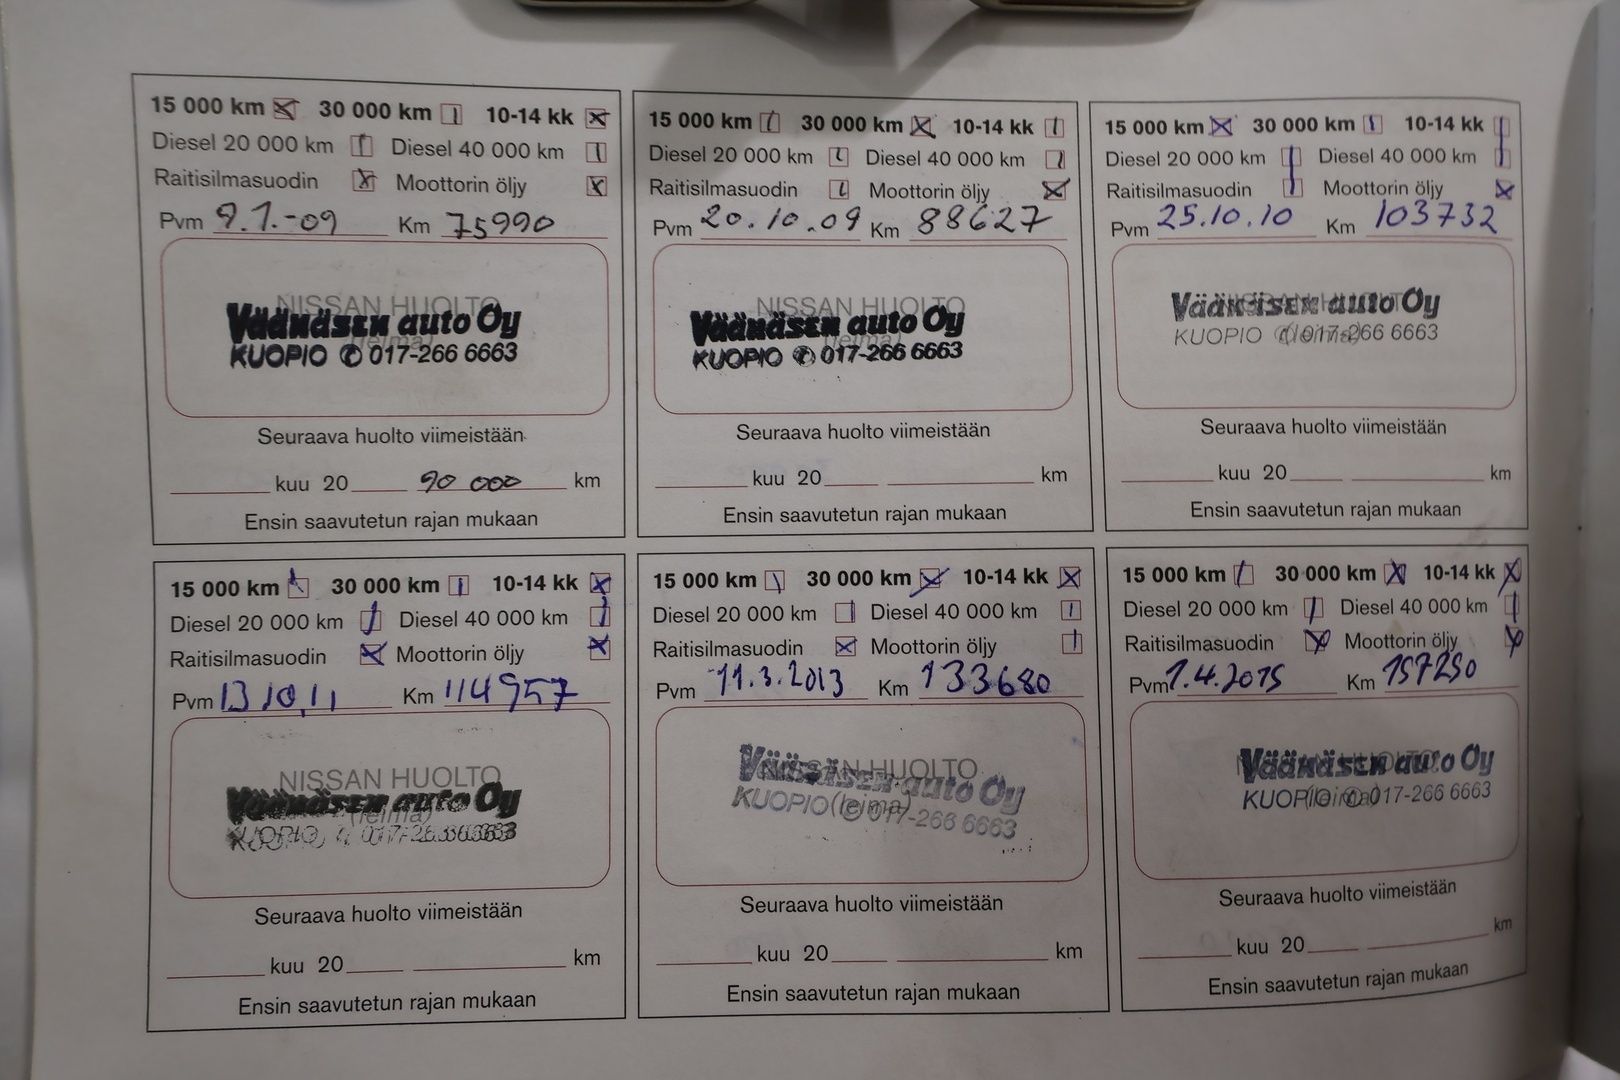 15 000 km 30 000 km 10-14 kk
Diesel 20 000 km Diesel 40 000 km
Raitisilmasuodin Moottorin öljy
Pvm 9.1.-09 Km 75990
NISSAN HUOLTO
(leima)
Väänäsen auto Oy
KUOPIO ✆ 017-266 6663
Seuraava huolto viimeistään
kuu 20 90 000 km
Ensin saavutetun rajan mukaan
15 000 km 30 000 km 10-14 kk
Diesel 20 000 km Diesel 40 000 km
Raitisilmasuodin Moottorin öljy
Pvm 20.10.09 Km 88627
NISSAN HUOLTO
(leima)
Väänäsen auto Oy
KUOPIO ✆ 017-266 6663
Seuraava huolto viimeistään
kuu 20 km
Ensin saavutetun rajan mukaan
15 000 km 30 000 km 10-14 kk
Diesel 20 000 km Diesel 40 000 km
Raitisilmasuodin Moottorin öljy
Pvm 25.10.10 Km 103732
NISSAN HUOLTO
(leima)
Väänäsen auto Oy
KUOPIO ✆ 017-266 6663
Seuraava huolto viimeistään
kuu 20 km
Ensin saavutetun rajan mukaan
15 000 km 30 000 km 10-14 kk
Diesel 20 000 km Diesel 40 000 km
Raitisilmasuodin Moottorin öljy
Pvm 13.10.11 Km 114957
NISSAN HUOLTO
(leima)
Väänäsen auto Oy
KUOPIO ✆ 017-266 6663
Seuraava huolto viimeistään
kuu 20 km
Ensin saavutetun rajan mukaan
15 000 km 30 000 km 10-14 kk
Diesel 20 000 km Diesel 40 000 km
Raitisilmasuodin Moottorin öljy
Pvm 11.3.2013 Km 133680
NISSAN HUOLTO
(leima)
Väänäsen auto Oy
KUOPIO ✆ 017-266 6663
Seuraava huolto viimeistään
kuu 20 km
Ensin saavutetun rajan mukaan
15 000 km 30 000 km 10-14 kk
Diesel 20 000 km Diesel 40 000 km
Raitisilmasuodin Moottorin öljy
Pvm 1.4.2015 Km 157250
NISSAN HUOLTO
(leima)
Väänäsen auto Oy
KUOPIO ✆ 017-266 6663
Seuraava huolto viimeistään
kuu 20 km
Ensin saavutetun rajan mukaan